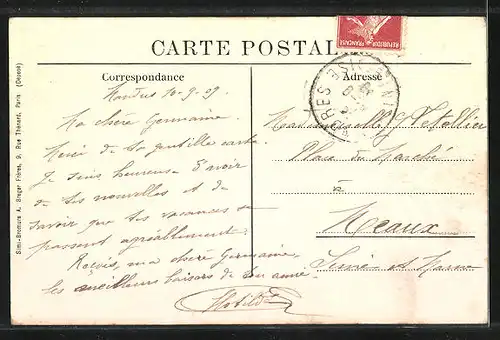 CARTE POSTALE
REPUBLIQUE FRANÇAISE
Correspondance
Adresse
10-9-09
Ma chère Germaine
Merci de ta gentille carte
Je suis heureuse d'avoir
de tes nouvelles et de
savoir que tes vacances se
passent agréablement.
Reçois, ma chère Germaine,
les meilleurs baisers de ton amie
Mademoiselle G
Place du Marché
à
Meaux
Seine et Marne
Simi-Bromure A. Breger Frères, 9, Rue Thénard, Paris